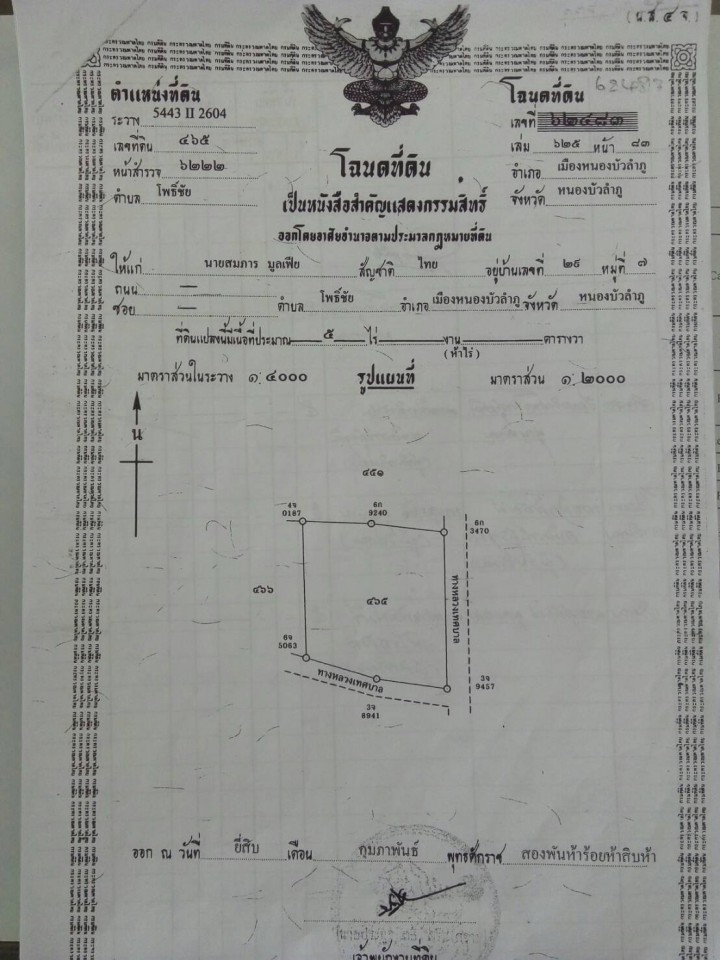 (น.ส.๔ จ.)
ตำแหน่งที่ดิน
โฉนดที่ดิน
ระวาง 5443 II 2604
เลขที่ ๖๒๔๘๓
เลขที่ดิน ๔๖๕
เล่ม ๖๒๕ หน้า ๘๓
หน้าสำรวจ ๖๒๒๒
อำเภอ เมืองหนองบัวลำภู
ตำบล โพธิ์ชัย
จังหวัด หนองบัวลำภู
โฉนดที่ดิน
เป็นหนังสือสำคัญแสดงกรรมสิทธิ์
ออกโดยอาศัยอำนาจตามประมวลกฎหมายที่ดิน
ให้แก่ นายสมภาร มูลเฟีย สัญชาติ ไทย อยู่บ้านเลขที่ ๒๙ หมู่ที่ ๗
ถนน —
ซอย — ตำบล โพธิ์ชัย อำเภอ เมืองหนองบัวลำภู จังหวัด หนองบัวลำภู
ที่ดินแปลงนี้มีเนื้อที่ประมาณ ๕ ไร่ — งาน — ตารางวา
(ห้าไร่)
มาตราส่วนในระวาง ๑:๔๐๐๐ รูปแผนที่ มาตราส่วน ๑:๒๐๐๐
น
๔๕๑
4จ 0187
6ก 9240
6ก 3470
๔๖๖
๔๖๕
ทางหลวงเทศบาล
6จ 5063
ทางหลวงเทศบาล
3จ 9457
3จ 8941
ออก ณ วันที่ ยี่สิบ เดือน กุมภาพันธ์ พุทธศักราช สองพันห้าร้อยห้าสิบห้า
เจ้าพนักงานที่ดิน